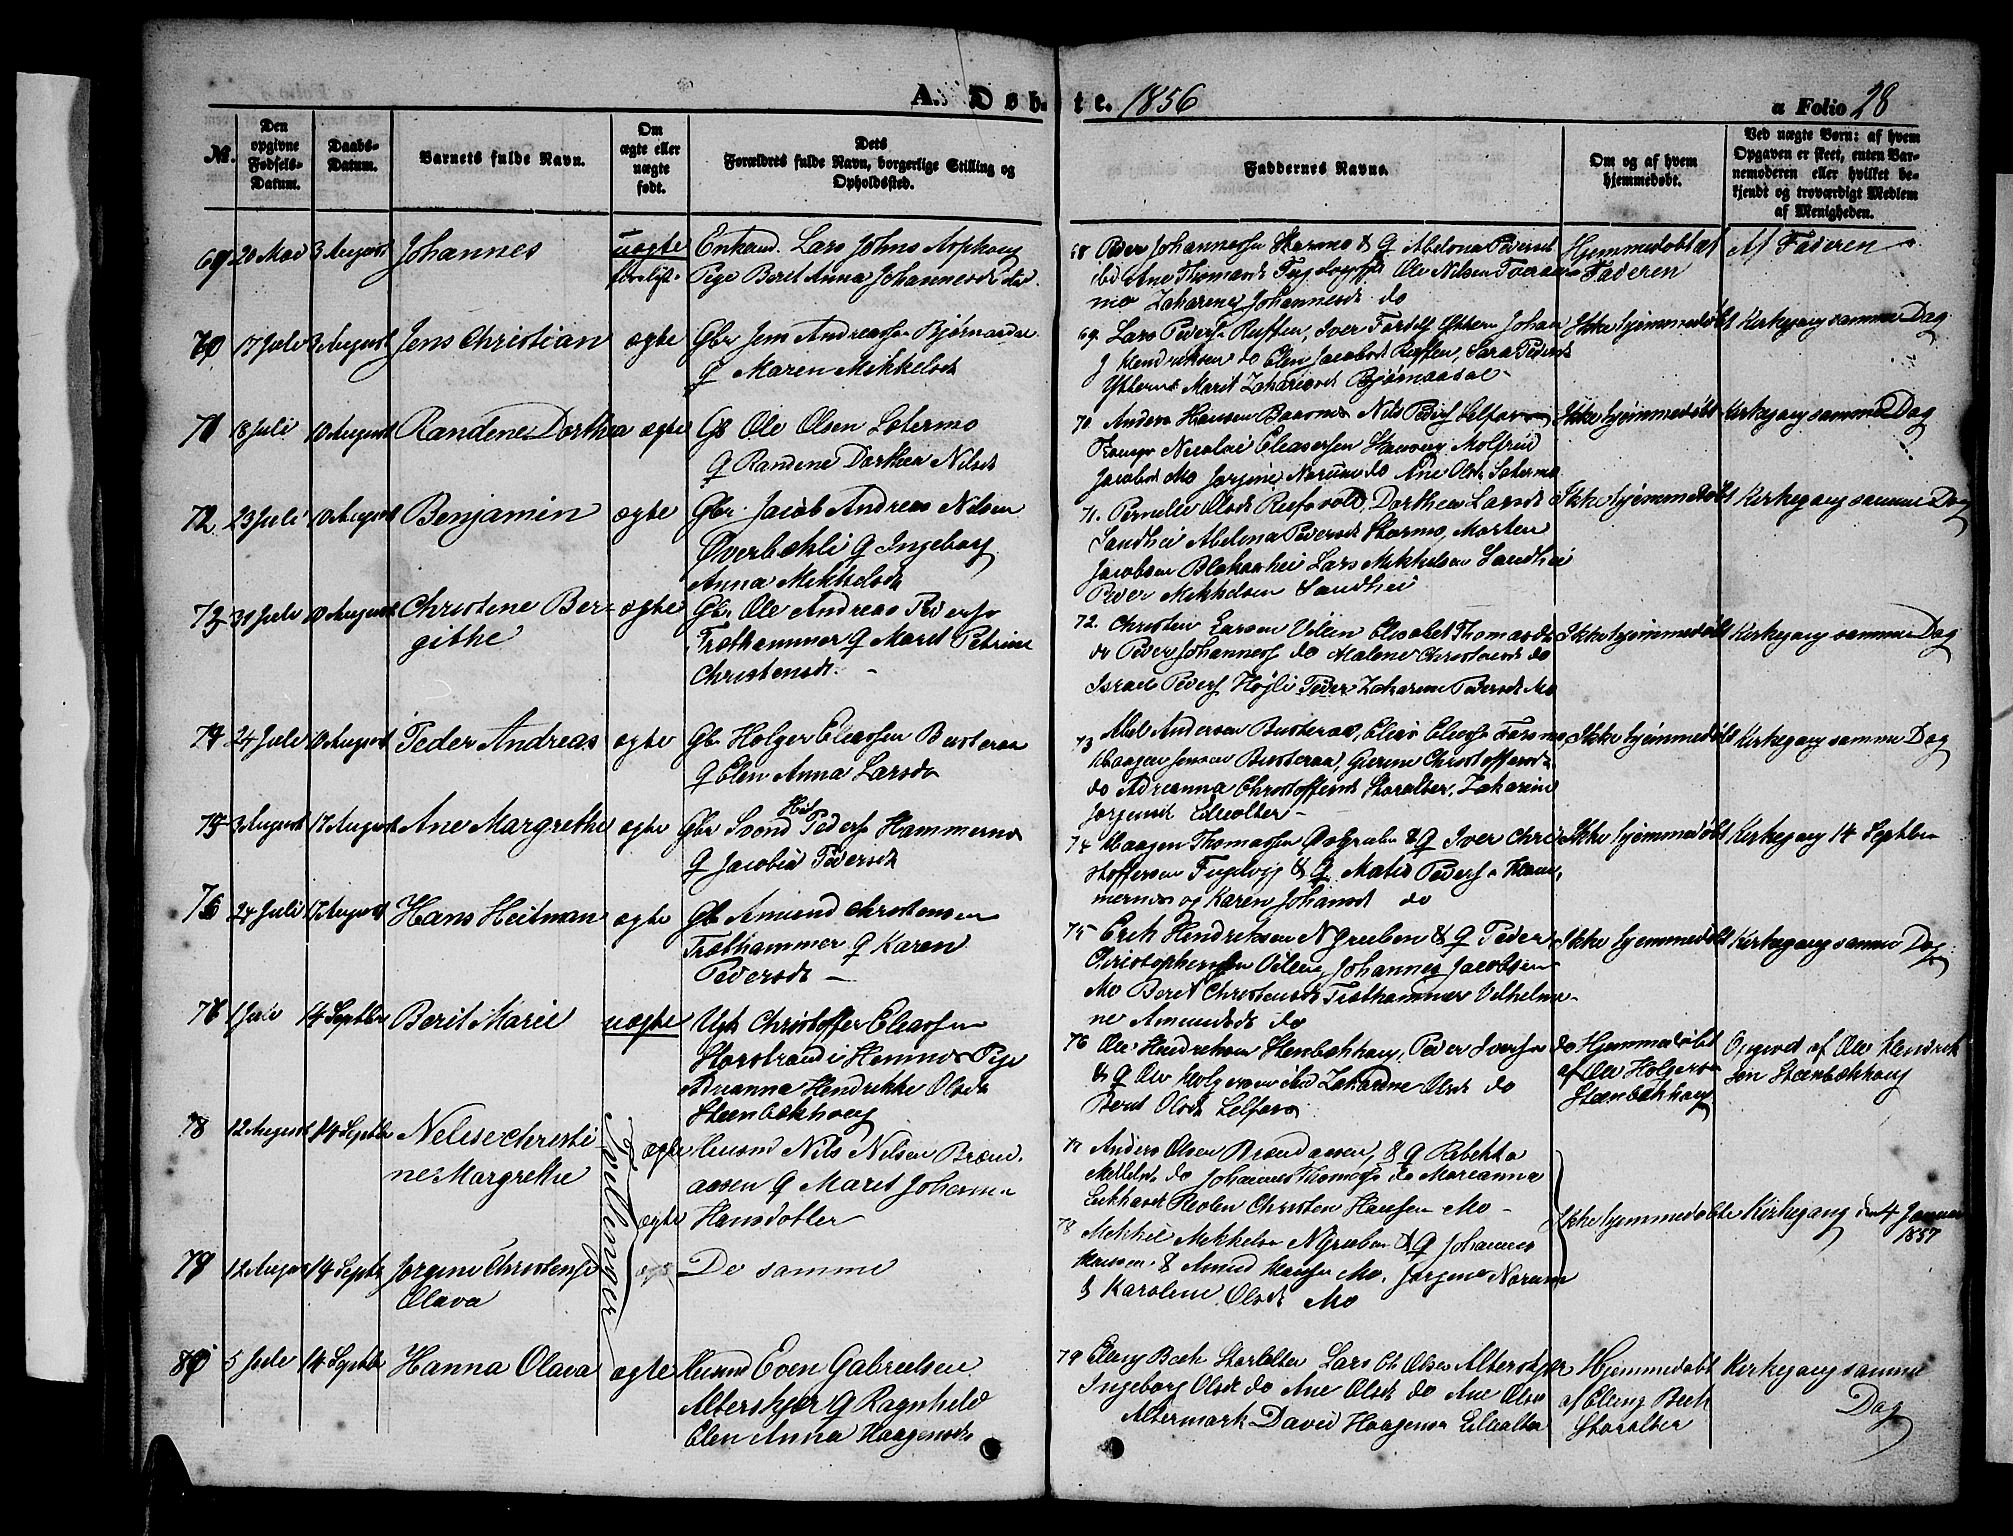 A. Døb-
te. 1856
a Folio 28
№.
Den opgivne Fødsels-Datum.
Daabs-Datum.
Barnets fulde Navn.
Om ægte eller uægte født.
Dets
Forældres fulde Navn, borgerlige Stilling og Opholdssted.
Faddernes Navne.
Om og af hvem hjemmedøbt.
Ved uægte Børn: af hvem
Opgaven er skeet, enten Bar-
nemoderen eller hvilket be-
kjendt og troværdigt Medlem
af Menigheden.
69 20 Mai 3 August Johannes uægte Enkem. Lars Johns
Pige Beret Anna Johannesdt
68 Peder Johannessen Stormo & Q Abelona Pedersdt
Ane Thomasdt Ole Nilsen
mo Zakarine Johannesdt do
Hjemmedøbt af
Faderen
Af Faderen
70 17 Juli 3 August Jens Christian ægte Gbr Jens Andreassen Bjørnaadal
Q Maren Mikkelsdt
69. Lars Peders. Iver Johan
Hendriksen do Elen Jacobsdt Sara Pedersdt
Ytteren Marit Zakariasdt Bjørnaadal
Ikke hjemmedøbt Kirkegang samme Dag
71 18 Juli 10 August Randene Dorthea ægte Gb Ole Olsen Sætermo
Q Randene Dorthea Nilsdt
70 Anders Hansen Baasmo Nils Peders. Selfors
Nicolai Eleasersen Haugen Molfrid
Jacobsdt Mo Jørgine do Ane Olsdt Sætermo
Ikke hjemmedøbt Kirkegang samme Dag
72 23 Juli 10 August Benjamin ægte Gbr. Jacob Andreas Nilsen
Overbækli Q Ingeborg
Anna Mikkelsdt
71. Pernelie Olsdt Dorthea Larsdt
Sandhei Abelona Pedersdt Stormo, Morten
Jacobsen Blakaahei Lars Mikkelsen Sandhei
Peder Mikkelsen Sandhei
Ikke hjemmedøbt Kirkegang samme Dag
73 31 Juli 10 August Christene Ber-
githe
ægte Gbr Ole Andreas Peders.
Træthammer Q Maret Petrine
Christensdt.
72. Christen Larsen Vilein Elisabet Thomasdt
do Peder Johannes. do Malene Christensdt do
Israel Peders. Højli Peder Zakarine Pedersdt Mo
Ikke hjemmedøbt Kirkegang samme Dag
74 24 Juli 10 August Peder Andreas ægte Gbr Holger Eleassen Busteraa
Q Elen Anna Larsdt
73 Abel Andersen Busteraa, Elias Eleass.
Haagen Jensen Busteraa, Christoffersdt
do Adrianna Christoffersdt Storalter, Zakarine
Jørgensdt Lillealter
Ikke hjemmedøbt Kirkegang samme Dag
75 3 August 17 August Ane Margrethe ægte Gbr Peders. Hammernes
Q Jacobia Pedersdt
74 Haagen Thomassen & Q Iver Chri-
stoffersen & Q Matis Peders. Ham-
mernes og Karen Johansdt do
Ikke hjemmedøbt Kirkegang 14 Septber
76 24 Juli 17 August Hans Heitman ægte Gb Amund Christensen
Træthammer Q Karen
Pedersdt
75 Erik Hendriksen Ngruben & Q Peder
Christophersen Vilein, Johannes Jacobsen
Mo Beret Christensdt Træthammer Vilhelmi-
ne Amundsdt do
Ikke hjemmedøbt Kirkegang samme Dag
76 1 Juli 14 Septber Berit Marie uægte Ugk Christoffer Eleassen
Storstrand i Hemnes Pige
Adrianna Hendrikke Olsdt
Steenbækhaug
76 Ole Hendriksen Stenbækhaug, Peder Iversen do
& Q Ole Holgersen do Zakarine Olsdt do
Beret Olsdt Selfors
Hjemmedøbt
af Ole Holgersen
Steenbækhaug
Opgivet af Ole Hendrik
sen Steenbækhaug
78 12 August 14 Septber Nelise Christi
ne Margrethe
Tvillinger
ægte Huusmd Nils Nilsen Brend-
aasen Q Maret Johanna
ægte Hansdotter
77 Anders Olsen Brendaasen & Q Rebekka
do Johannes Thomass. do Marianna
Christen Hansen Mo
78 Mikkel Mikkelsen Ngruben & Q Johannes
Hansen & Amund Hansen Mo. Jørgine
& Karoline Olsdt Mo
Ikke hjemmedøbte Kirkegang den 4 Januar
1857
79 12 August 14 Septbr Jørgine Christense
Olava
De samme
80 5 Juli 14 Septber Hanna Olava ægte Huusmd Even Gabrielsen
Alterskjær Q Ragnhild
Elen Anna Haagensdt
79 Elling Bech Storalter Lars Ch Olsen Alterskjær
Ingeborg Olsdt do Ane Olsdt do Ane Olsdt
Altermark David Haagensen Lillealter
Hjemmedøbt
af Elling Bech
Storalter
Kirkegang samme
Dag